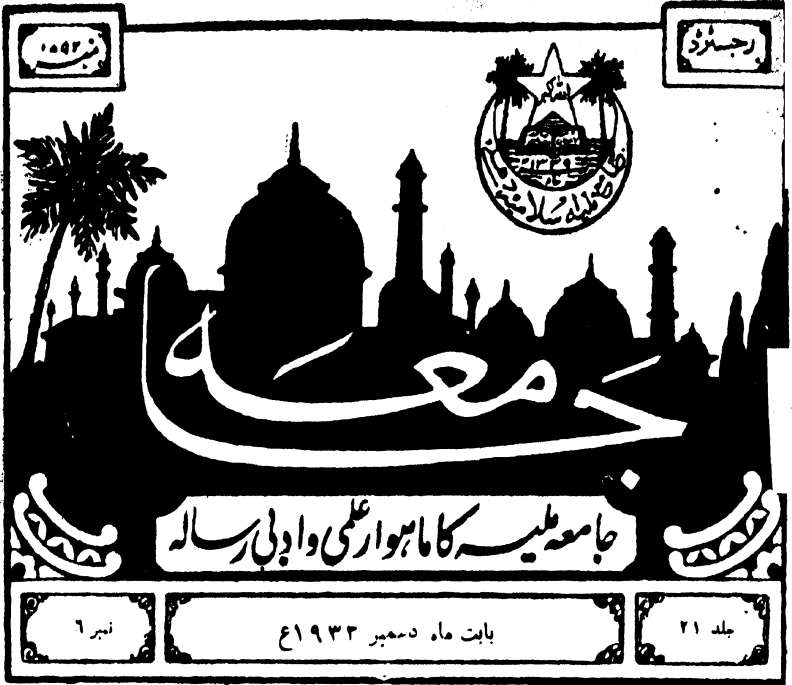 رجسٹرڈ
نمبر
اللہ اکبر
۱۳۳۹
جامعہ ملیہ اسلامیہ دہلی
جامعہ
جامعہ ملیہ کا ماہوار علمی و ادبی رسالہ
جلد ۲۱
بابت ماہ دسمبر ۱۹۳۳ع
نمبر ۶